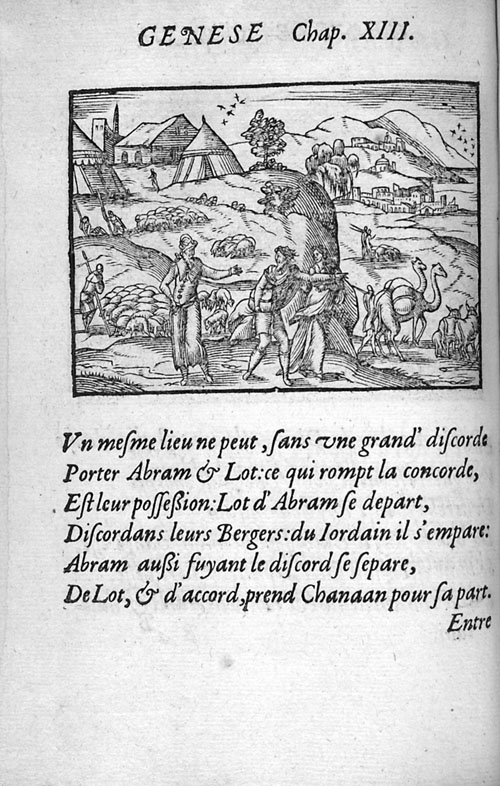 GENESE Chap. XIII.
Vn meſme lieu ne peut, ſans vne grand' diſcorde
Porter Abram & Lot: ce qui rompt la concorde,
Eſt leur poſſeſsion: Lot d'Abram ſe depart,
Diſcordans leurs Bergers: du Iordain il s'empare:
Abram auſsi fuyant le diſcord ſe ſepare,
De Lot, & d'accord, prend Chanaan pour ſa part.
Entre